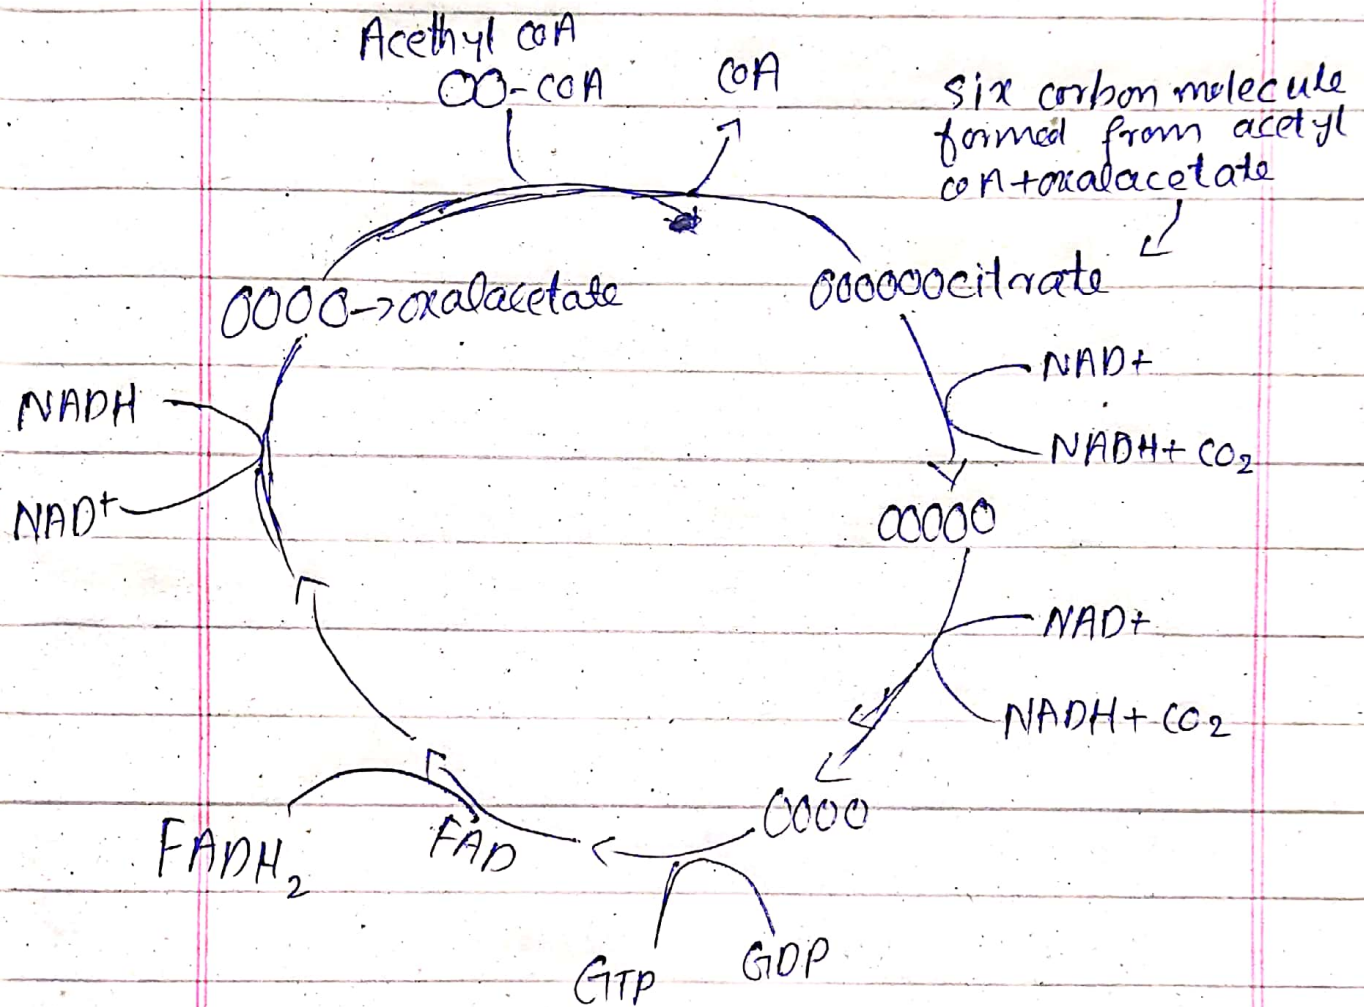 Acethyl COA
OO-COA
COA
six corbon molecule
formed from acetyl
coA+oxalacetate
OOOO->oxalacetate
OOOOOOcitrate
NAD+
NADH
NADH+ CO2
NAD+
OOOOO
NAD+
NADH+CO2
OOOO
FADH2
FAD
GTP
GDP